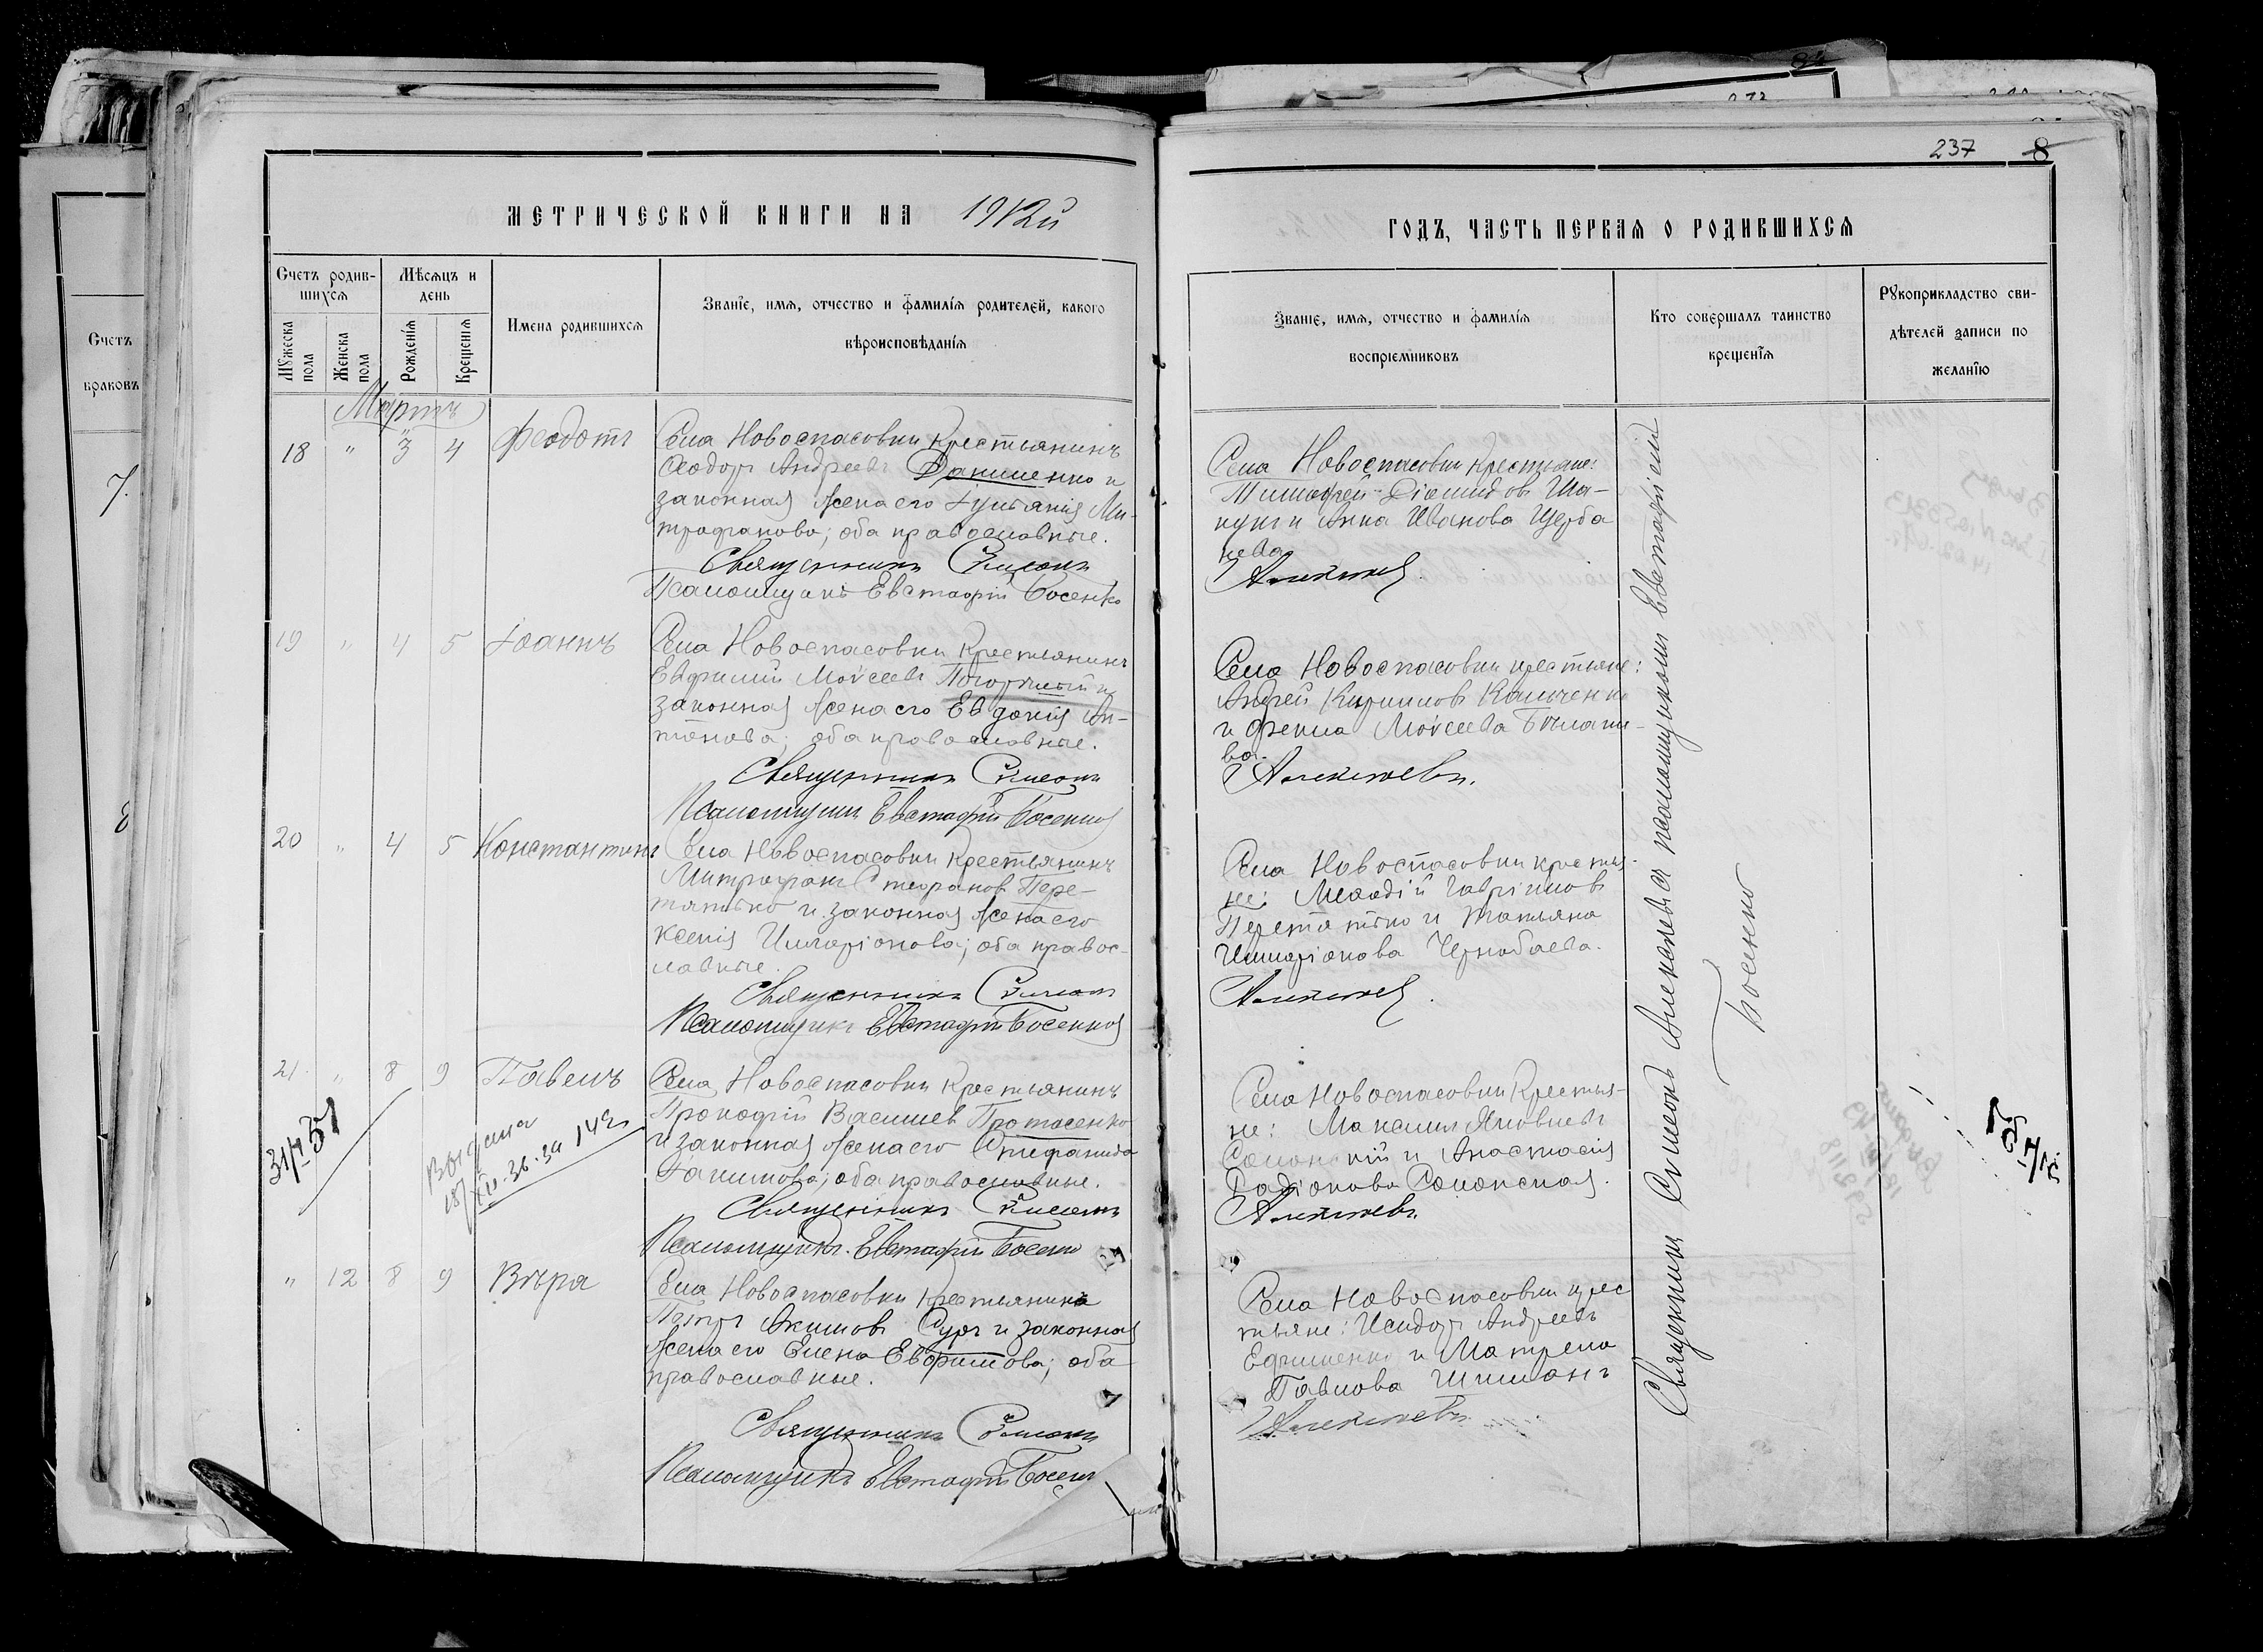 237 8
МЕТРИЧЕСКОЙ КНИГИ НА 1912й
ГОДЪ, ЧАСТЬ ПЕРВАЯ О РОДИВШИХСЯ
Счетъ родив-
шихся
Мѣсяцъ и
день
Мужеска пола
Женска пола
Рожденія
Крещенія
Имена родившихся
Званіе, имя, отчество и фамилія родителей, какого
вѣроисповѣданія
Званіе, имя, отчество и фамилія
воспріемниковъ
Кто совершалъ таинство
крещенія
Рукоприкладство сви-
дѣтелей записи по
желанію
Счетъ
браковъ
7.
Мартъ
18 " 3 4 Феодотъ
Села Новоспасовки крестьянинъ
Ѳеодоръ Андреевъ Даниленко и
законная жена его Іуліанія Ми-
трофанова; оба православные.
Священникъ Симеонъ
Псаломщикъ Евстафій Босенко
Села Новоспасовки крестьяне:
Тимофей Діомидовъ Ша-
и Анна Иванова Щерба
нева
Алексѣевъ
19 " 4 5 Іоаннъ
Села Новоспасовки крестьянинъ
Евфимій Моисеевъ и
законная жена его Евдокія Ан-
тонова; оба православные.
Священникъ Симеонъ
Псаломщикъ Евстафій Босенко
Села Новоспасовки крестьяне:
Андрей Кирилловъ Кальченко
и Фекла Моисеева
ва.
Алексѣевъ.
20 " 4 5 Константинъ
Села Новоспасовки крестьянинъ
Митрофанъ Стефановъ Пере-
тятько и законная жена его
Ксенія Иларіонова; оба правос-
лавные.
Священникъ Симеонъ
Псаломщикъ Евстафій Босенко
Села Новоспасовки крестья-
не: Меѳодій Гавріиловъ
Перетятько и Татьяна
Илларіонова Чернобаева.
Алексѣевъ.
21 " 8 9 Павелъ
Села Новоспасовки крестьянинъ
Прокофій Васильевъ Протасенко
и законная жена его Стефанида
Іакимова; оба православные.
Священникъ Симеонъ
Псаломщикъ Евстафій Босенко
Села Новоспасовки крестья-
не: Максимъ Яковлевъ
Солонскій и Анастасія
Родіонова Солонская.
Алексѣевъ
Выдана
" 12 8 9 Вѣра
Села Новоспасовки крестьянинъ
Петръ Акимовъ Сура и законная
жена его Елена Евфимова; оба
православные.
Священникъ Симеонъ
Псаломщикъ Евстафій Босенко
Села Новоспасовки крес
тьяне: Исидоръ Андреевъ
Ефименко и Матрена
Павлова
Алексѣевъ
Священникъ Симеонъ Алексѣевъ съ псаломщикомъ Евстафіемъ
Босенко